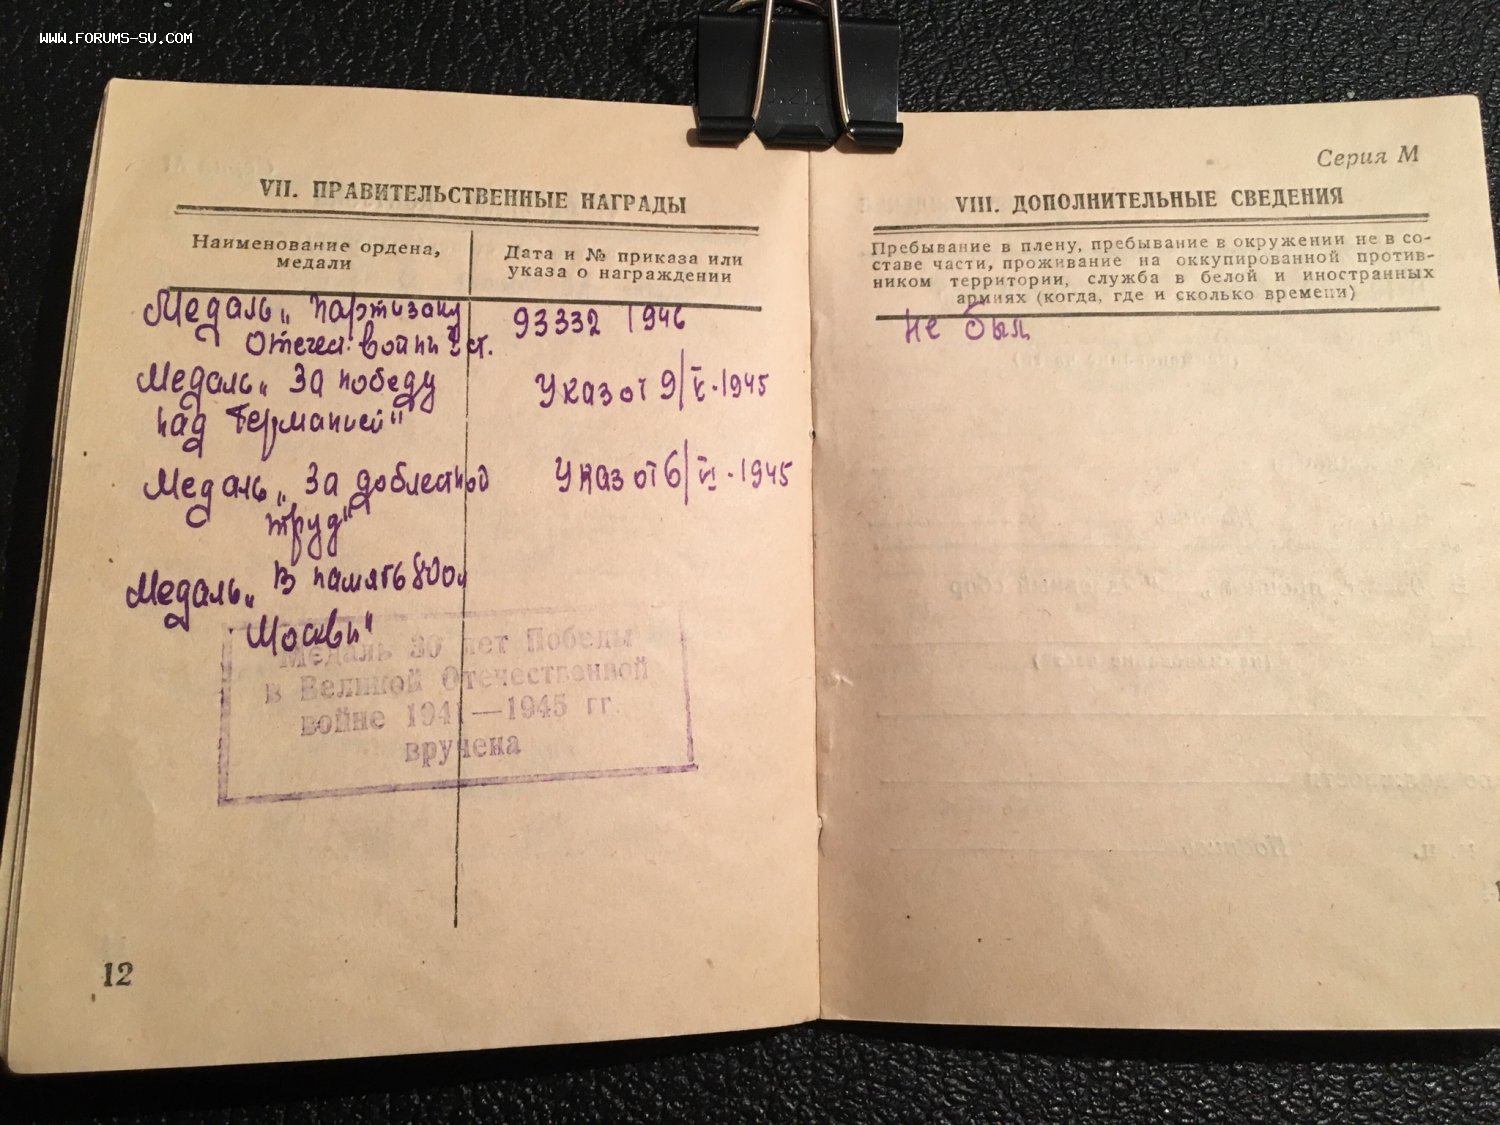 WWW.FORUMS-SU.COM
VII. ПРАВИТЕЛЬСТВЕННЫЕ НАГРАДЫ
Наименование ордена,
медали
Дата и № приказа или
указа о награждении
Медаль „Партизану
Отечест. войны 2 ст.
93332 1946
Медаль „За победу
над Германией"
Указ от 9/V.1945
Медаль „За доблестной
труд"
Указ от 6/VI.1945
Медаль „В память 800л
Москвы"
Медаль 30 лет Победы
в Великой Отечественной
войне 1941—1945 гг.
вручена
12
Серия М
VIII. ДОПОЛНИТЕЛЬНЫЕ СВЕДЕНИЯ
Пребывание в плену, пребывание в окружении не в со-
ставе части, проживание на оккупированной против-
ником территории, служба в белой и иностранных
армиях (когда, где и сколько времени)
не был